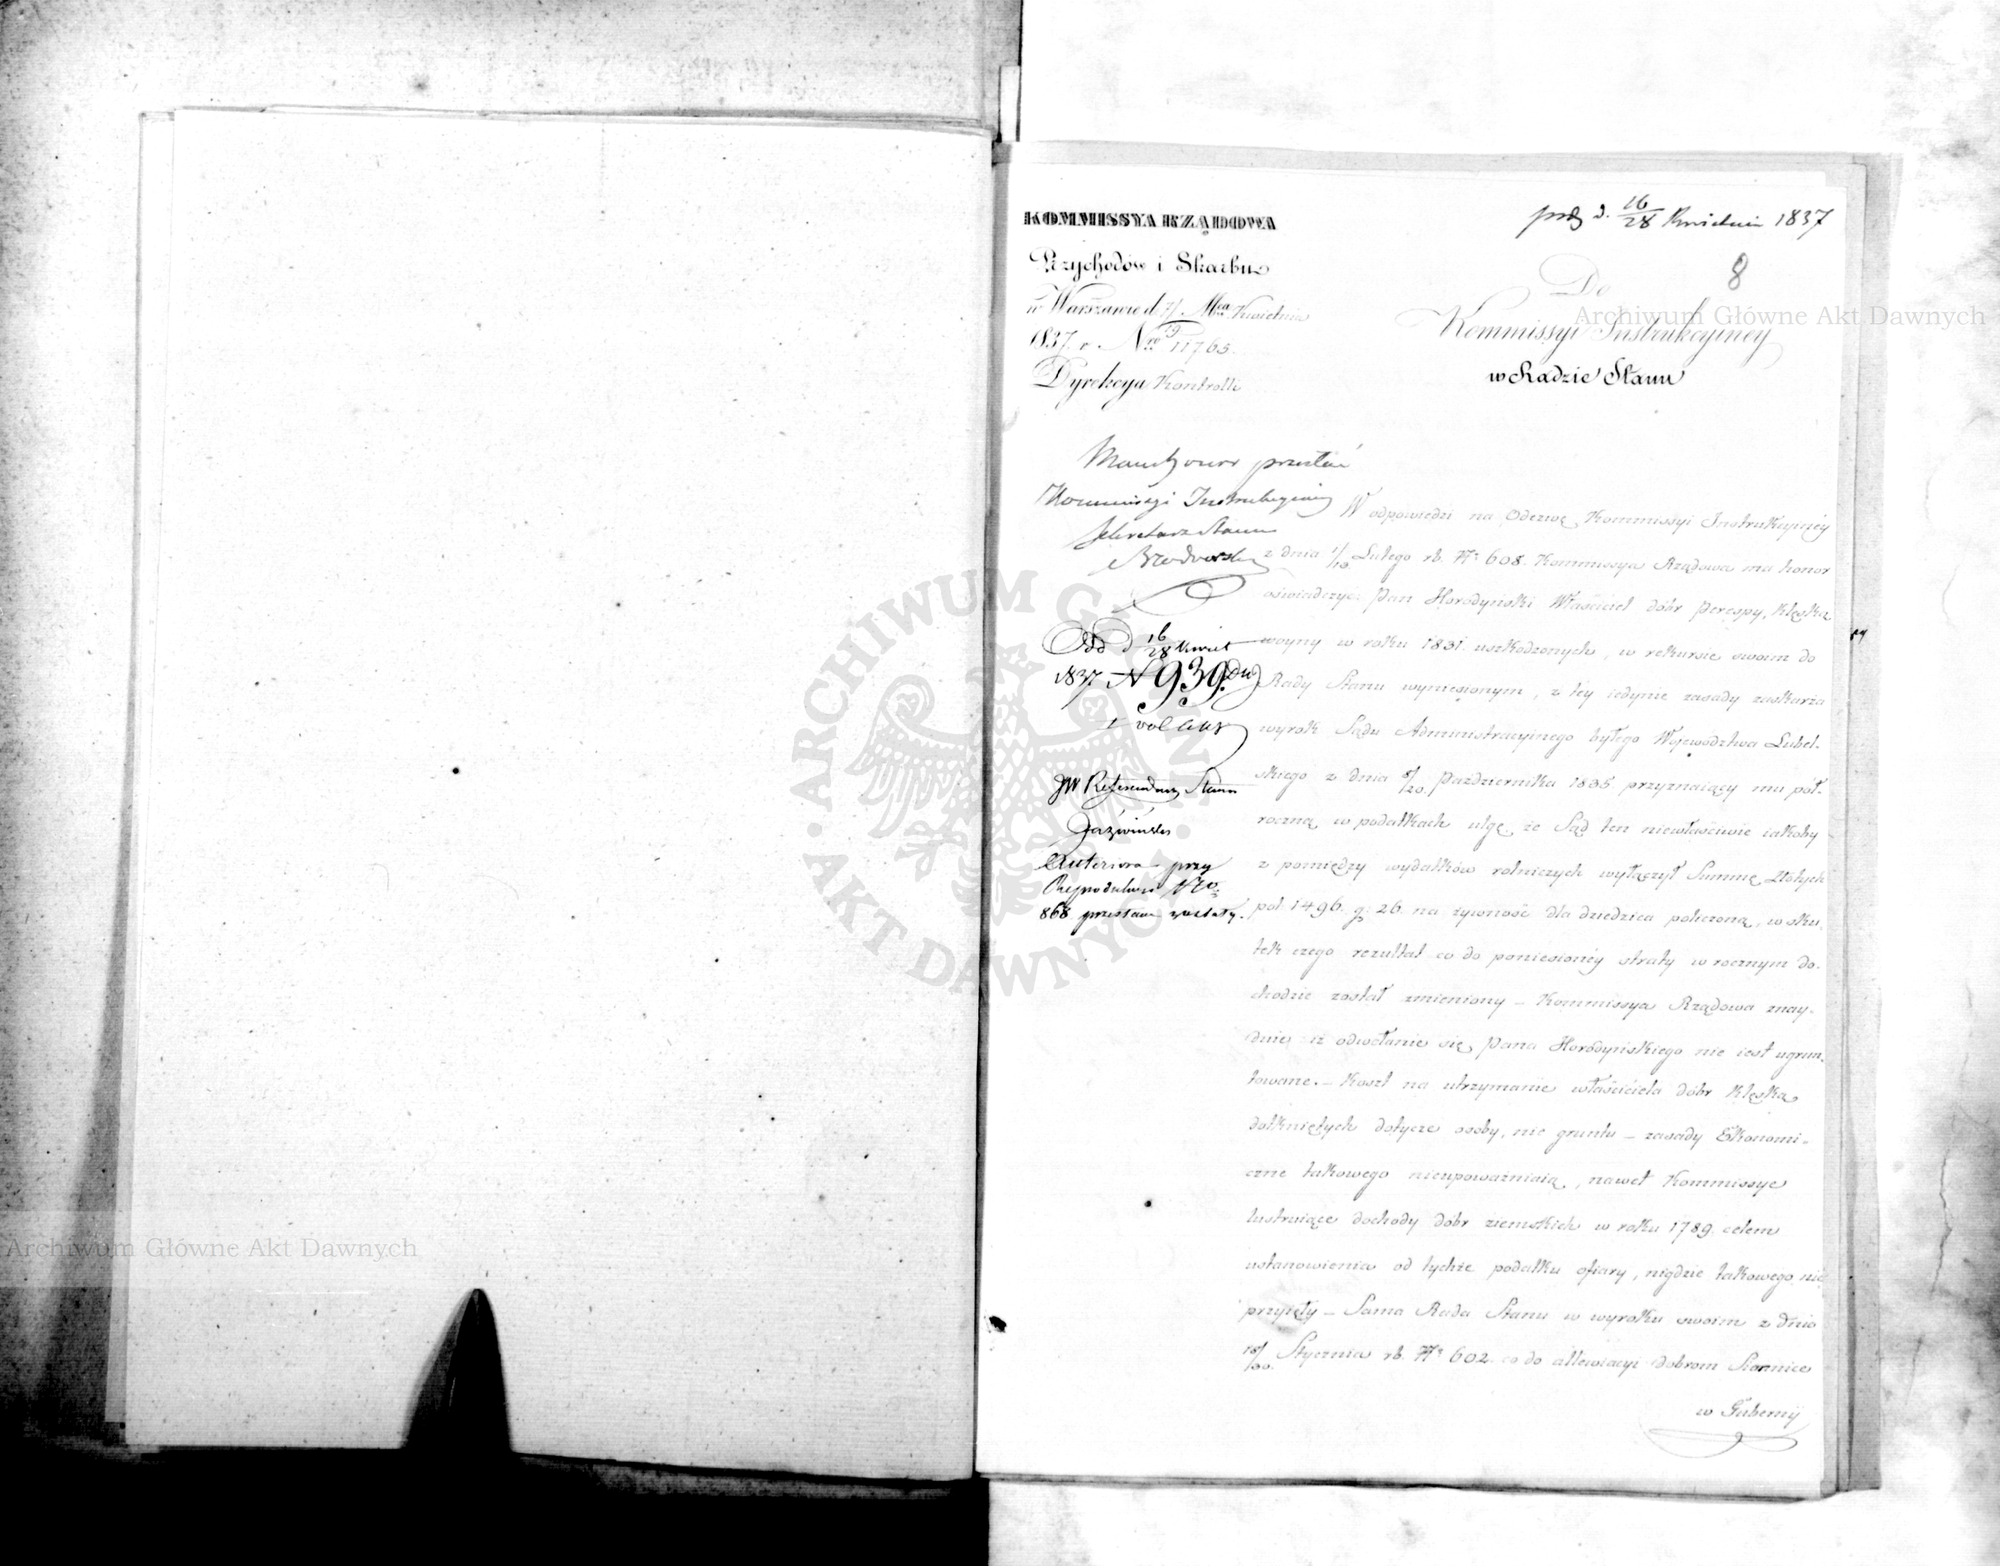 KOMMISSYA RZĄDOWA
Przychodów i Skarbu
w Warszawie d. 7/19 Mca Kwietnia
1837. r. Nro 11765.
Dyrekcya Kontrolli
prez d. 16/28 Kwietnia 1837
8
Do
Kommissyi Instrukcyiney
w Radzie Stanu
przesłać
Kommissyi Instrukcyiney
Sekretarz Stanu
Odd d 16/28 Kwiet
1837 N 939.
1 vol akt
JW Referendarz Stanu
Anteriora przy
868 przesłane zostały.
W odpowiedzi na Odezwę Kommissyi Instrukcyiney
z dnia 1/10 Lutego rb. No 608. Kommissya Rządowa ma honor
oświadczyć: Pan Horodyński Właściciel dóbr Perespy, klęską
woyny w roku 1831. uszkodzonych, w rekursie swoim do
Rady Stanu wyniesionym, z tey iedynie zasady zaskarża
wyrok Sądu Administracyinego byłego Województwa Lubel-
skiego z dnia 8/20. Października 1835. przyznaiący mu pół-
roczną w podatkach ulgę, że Sąd ten niewłaściwie iakoby
z pomiędzy wydatków rolniczych wyłączył Summę Złotych
pol. 1496. g. 26. na żywność dla dziedzica policzoną, w sku-
tek czego rezultat co do poniesioney straty w rocznym do-
chodzie został zmieniony – Kommissya Rządowa znay-
duie iż odwołanie się Pana Horodyńskiego nie iest ugrun-
towane. – Koszt na utrzymanie właściciela dóbr klęską
dotkniętych dotycze osoby, nie gruntu – zasady Ekonomi-
czne takowego nieupoważniaią, nawet Kommissye
lustruiące dochody dóbr ziemskich w roku 1789. celem
ustanowienia od tychże podatku ofiary, nigdzie takowego nie
przyięły – Sama Rada Stanu w wyroku swoim z dnia
18/30. Stycznia rb. No 602. co do allewiacyi dobrom
w Gubernij
Archiwum Główne Akt Dawnych
Archiwum Główne Akt Dawnych
ARCHIWUM GŁÓWNE · AKT DAWNYCH ·